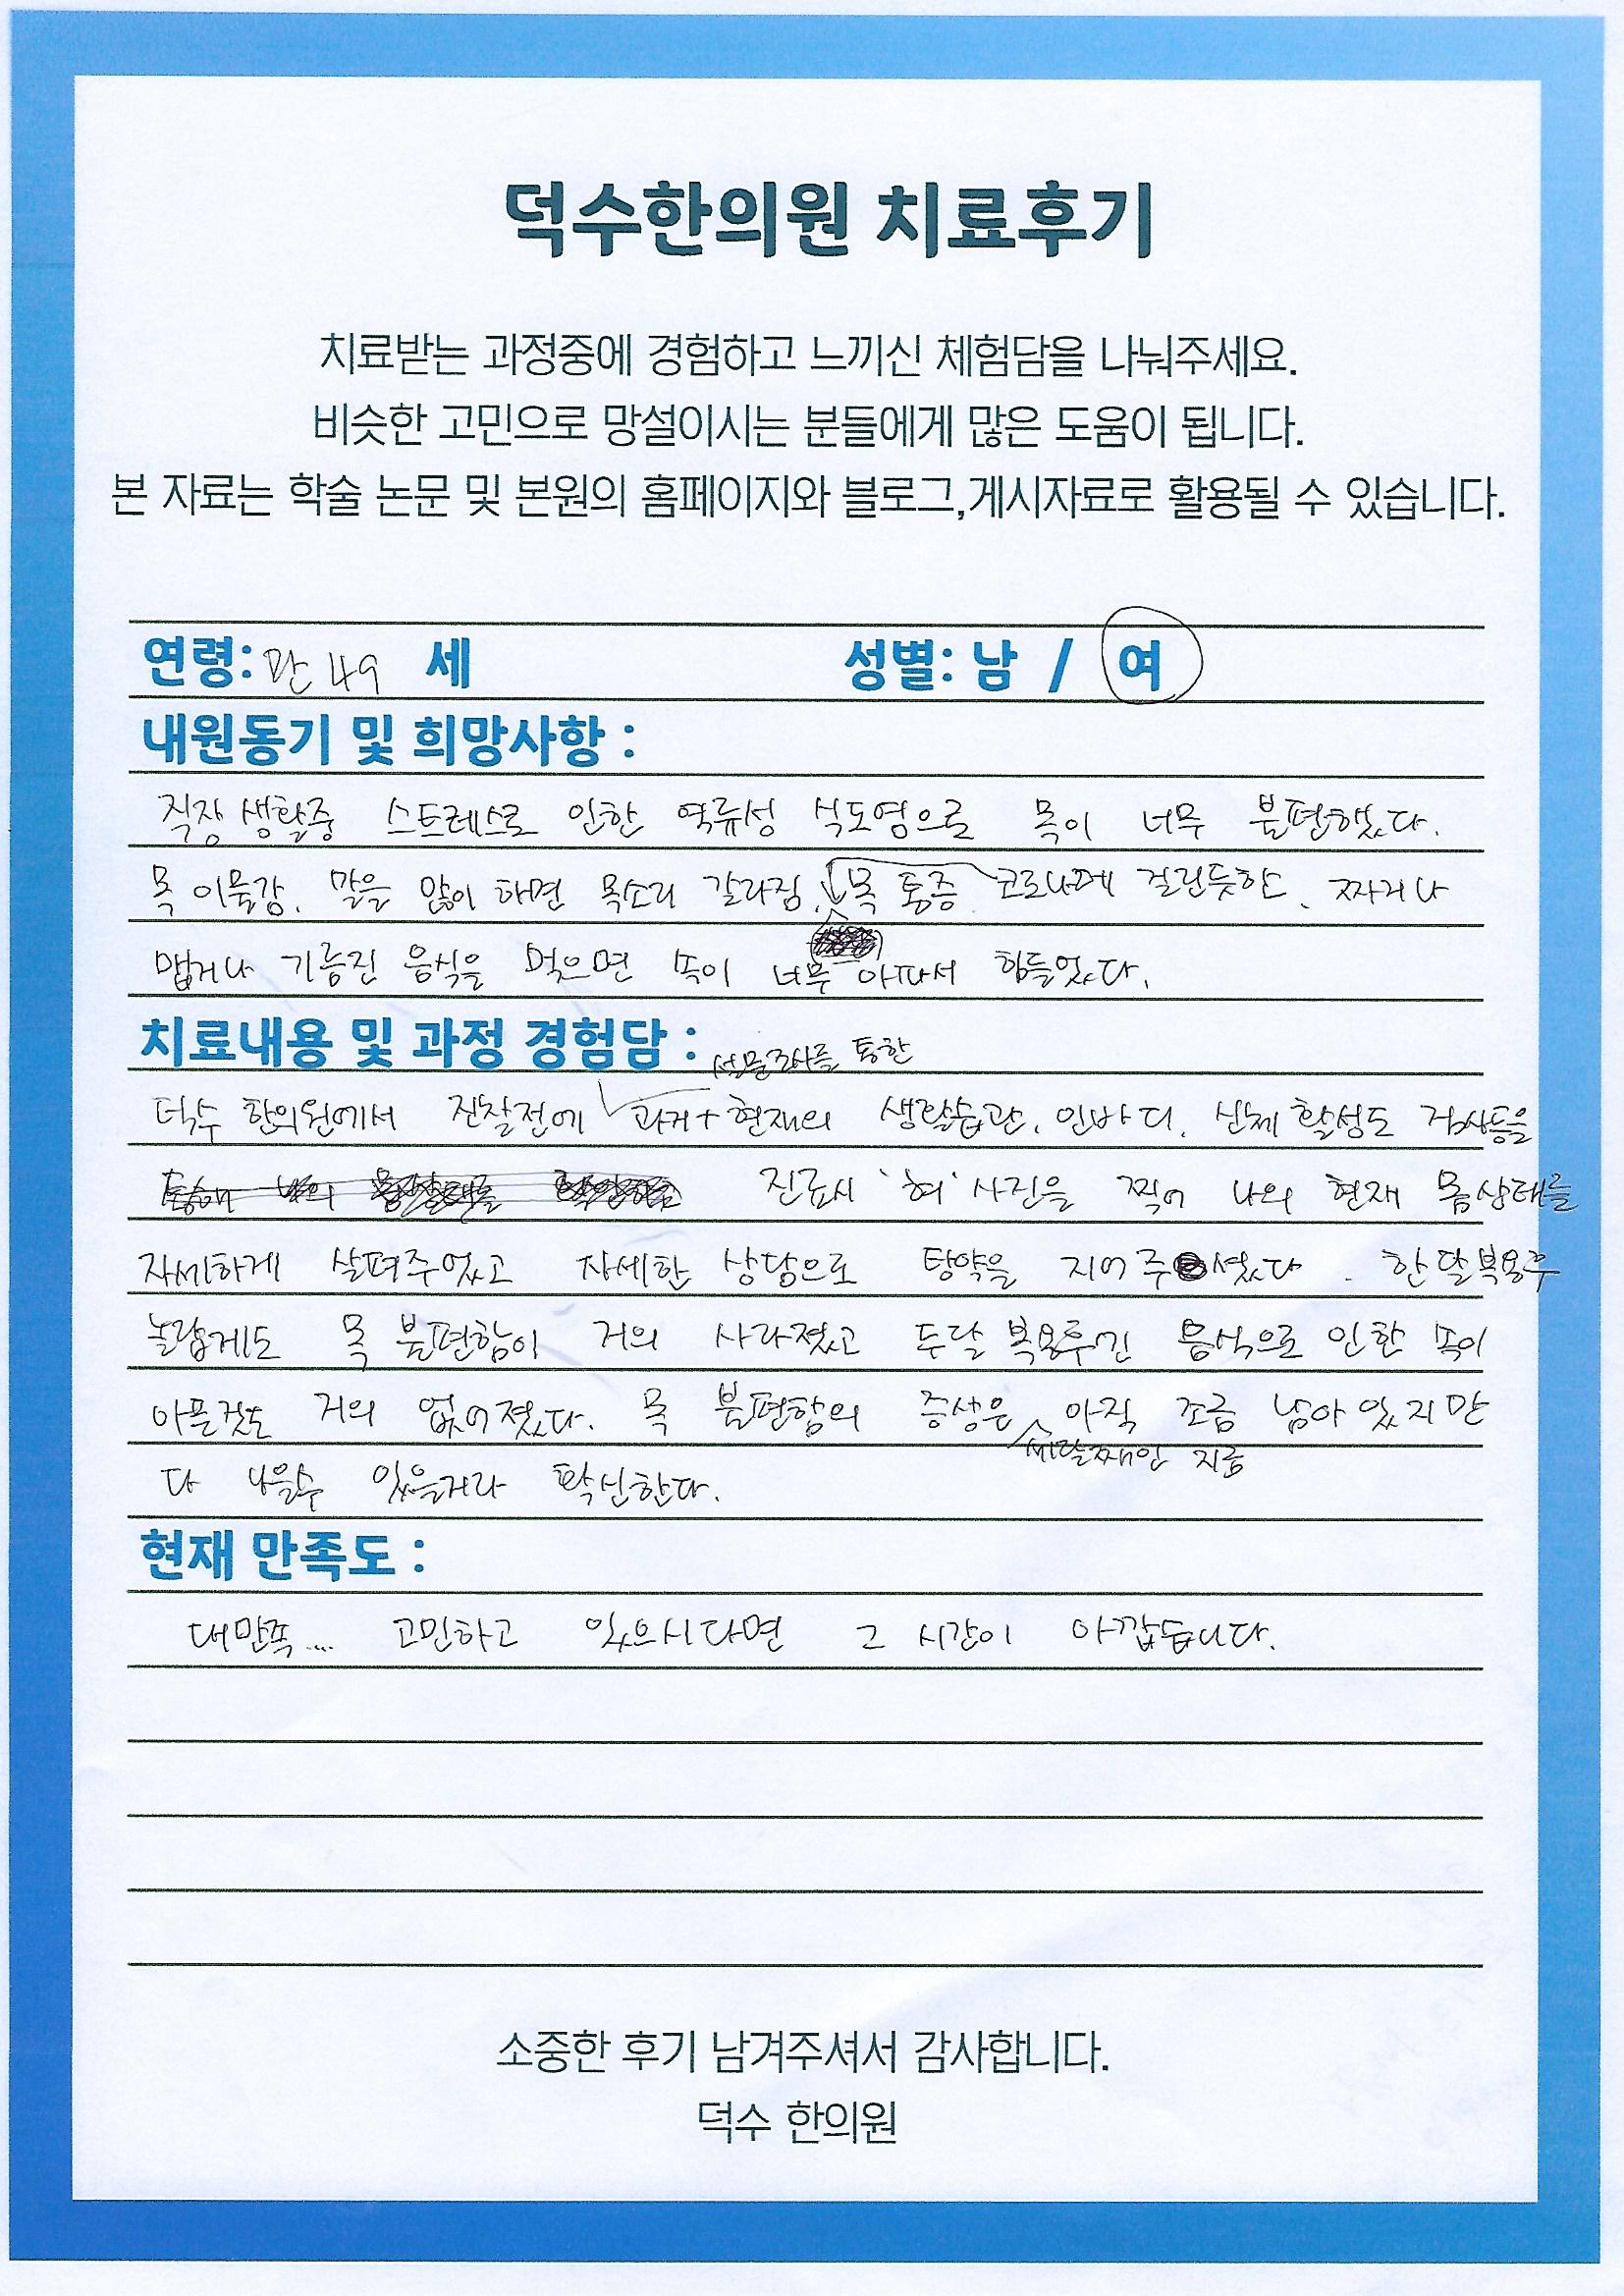 덕수한의원 치료후기
치료받는 과정중에 경험하고 느끼신 체험담을 나눠주세요.
비슷한 고민으로 망설이시는 분들에게 많은 도움이 됩니다.
본 자료는 학술 논문 및 본원의 홈페이지와 블로그,게시자료로 활용될 수 있습니다.
연령: 만 49 세 성별: 남 / 여
내원동기 및 희망사항 :
직장 생활중 스트레스로 인한 역류성 식도염으로 목이 너무 불편했다.
목 이물감. 말을 많이 하면 목소리 갈라짐. 목 통증 코로나에 걸린듯한. 짜거나
맵거나 기름진 음식을 먹으면 속이 너무 아파서 힘들었다.
치료내용 및 과정 경험담 :
설문조사를 통한
덕수 한의원에서 진찰전에 과거+현재의 생활습관, 인바디, 신체 활성도 검사등을
진료시 '혀' 사진을 찍어 나의 현재 몸상태를
자세하게 살펴주었고 자세한 상담으로 탕약을 지어주셨다. 한달복용후
놀랍게도 목 불편함이 거의 사라졌고 두달 복용후긴 음식으로 인한 속이
아픈것도 거의 없어졌다. 목 불편함의 증상은 아직 조금 남아 있지만
세달째인 지금
다 나을수 있을거라 확신한다.
현재 만족도 :
대만족.... 고민하고 있으시다면 그 시간이 아깝습니다.
소중한 후기 남겨주셔서 감사합니다.
덕수 한의원